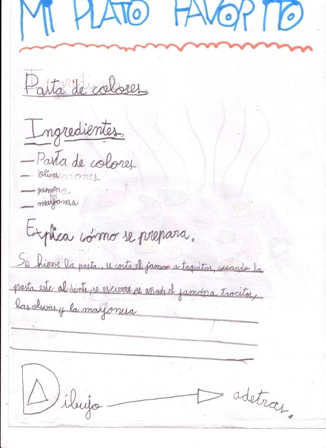 MI PLATO FAVORITO
Pasta de colores
Ingredientes
— Pasta de colores
— olivas
— jamón
— mayonesa
Explica cómo se prepara.
Se hierve la pasta, se corta el jamon a taquitos, cuando la
pasta este al dente, se escurre se añade el jamón a trocitos,
las olivas y la mayonesa
Dibujo → adetras.